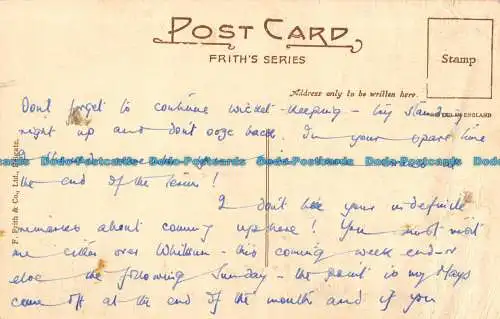 POST CARD
FRITH'S SERIES
Stamp
Address only to be written here.
ENGLAND
F. Frith & Co., Ltd., Reigate.
Don't forget to continue wicket-keeping - try standing
right up and don't ooze back. In your spare time
Dodo-Postcards Dodo-Postcards Dodo-Postcards
the end of the term!
I don't like your indefinite
remarks about coming up here! You must visit
me either over Whitsun - this coming week end or
else the following Sunday - the point is my Mays
come off at the end of the month and if you